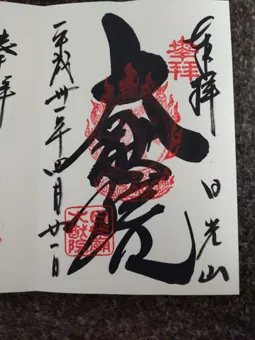 奉拝
日光山
奉拝
大猷院
日光廟
大猷院
平成卅一年四月廿一日
奉拝